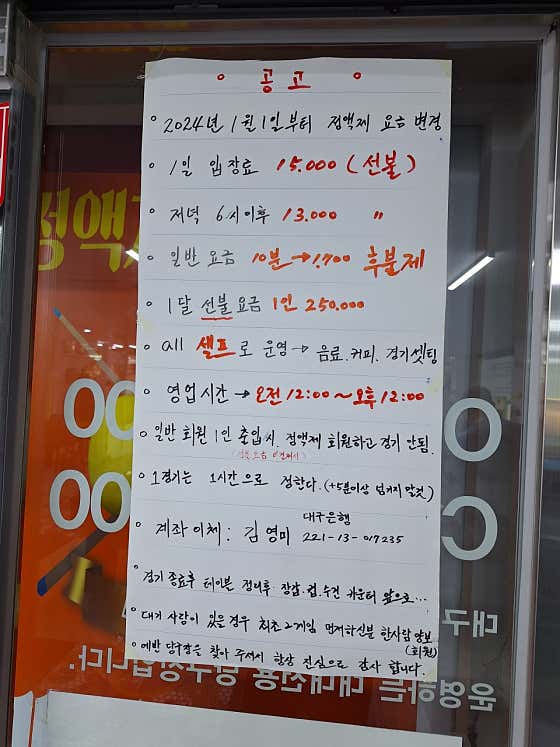 ° 공고 °
° 2024년 1월 1일부터 정액제 요금 변경
° 1일 입장료 15.000 (선불)
° 저녁 6시이후 13.000 "
° 일반 요금 10분→1.700 후불제
° 1달 선불요금 1인 250.000
° all 셀프로 운영→ 음료.커피.경기셋팅
° 영업시간→오전12:00~오후12:00
° 일반 회원 1인 출입시. 정액제 회원하고 경기 안됨.
° 1경기는 1시간으로 정한다.(+5분이상 넘기지 말것)
° 계좌이체: 김영미 대구은행
221-13-017235
° 경기 종료후 테이블 정리후 장갑.컵.수건 카운터 앞으로...
° 대기 사람이 있을경우 최초 2게임 먼저하신분 한사람 양보
(회원)
° 예반 당구장을 찾아 주셔서 항상 진심으로 감사 합니다.
정액
대구
운영하는 대대전용 당구장입니다.